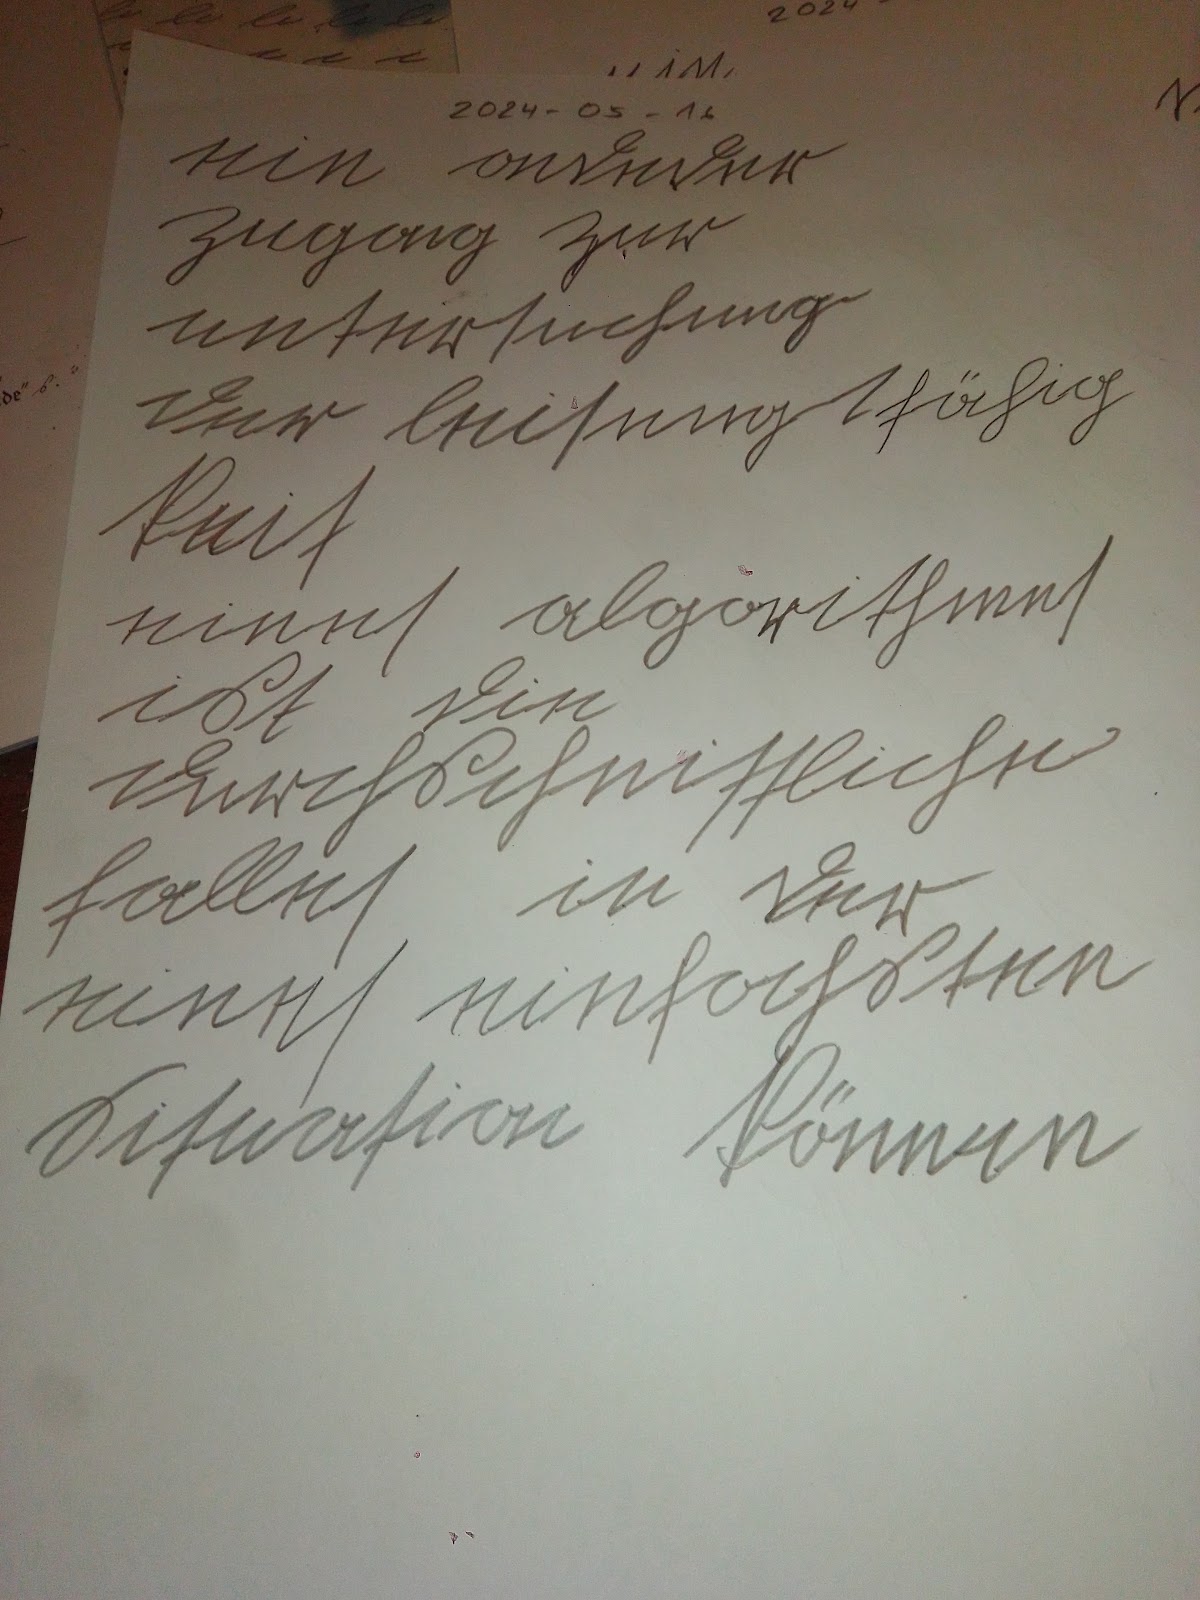 2024-
i.M.
2024-05-16
ein anderer
zugang zur
untersuchung
der leisungsfähig
keit
eines algorithmes
ist die
durchschnittliche
falles in der
eines einfachsten
situation können